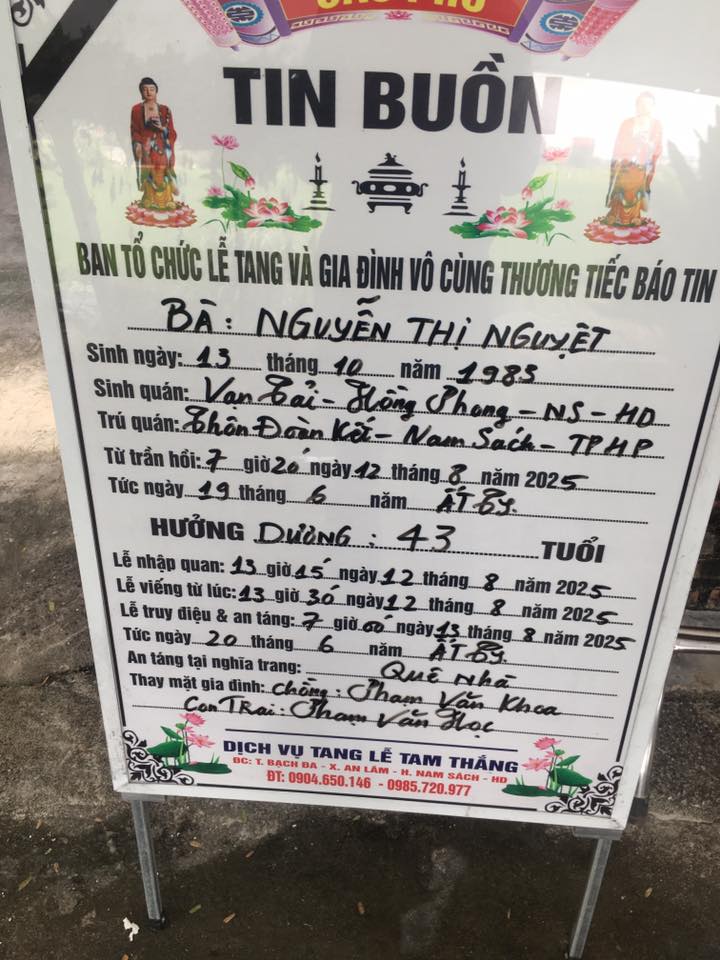 TIN BUỒN
BAN TỔ CHỨC LỄ TANG VÀ GIA ĐÌNH VÔ CÙNG THƯƠNG TIẾC BÁO TIN
BÀ: NGUYỄN THỊ NGUYỆT
Sinh ngày: 13 tháng 10 năm 1983
Sinh quán: Vạn Tải - Hồng Phong - NS - HD
Trú quán: Thôn Đoàn Kết - Nam Sách - TPHP
Từ trần hồi: 7 giờ 20 ngày 12 tháng 8 năm 2025
Tức ngày 19 tháng 6 năm ẤT TỴ
HƯỞNG DƯƠNG: 43 TUỔI
Lễ nhập quan: 13 giờ 15 ngày 12 tháng 8 năm 2025
Lễ viếng từ lúc: 13 giờ 30 ngày 12 tháng 8 năm 2025
Lễ truy điệu & an táng: 7 giờ 00 ngày 13 tháng 8 năm 2025
Tức ngày 20 tháng 6 năm ẤT TỴ
An táng tại nghĩa trang: Quê Nhà
Thay mặt gia đình: Chồng: Phạm Văn Khoa
Con Trai: Phạm Văn Học
DỊCH VỤ TANG LỄ TAM THẮNG
ĐC: T. BẠCH ĐA - X. AN LÂM - H. NAM SÁCH - HD
ĐT: 0904.650.146 - 0985.720.977